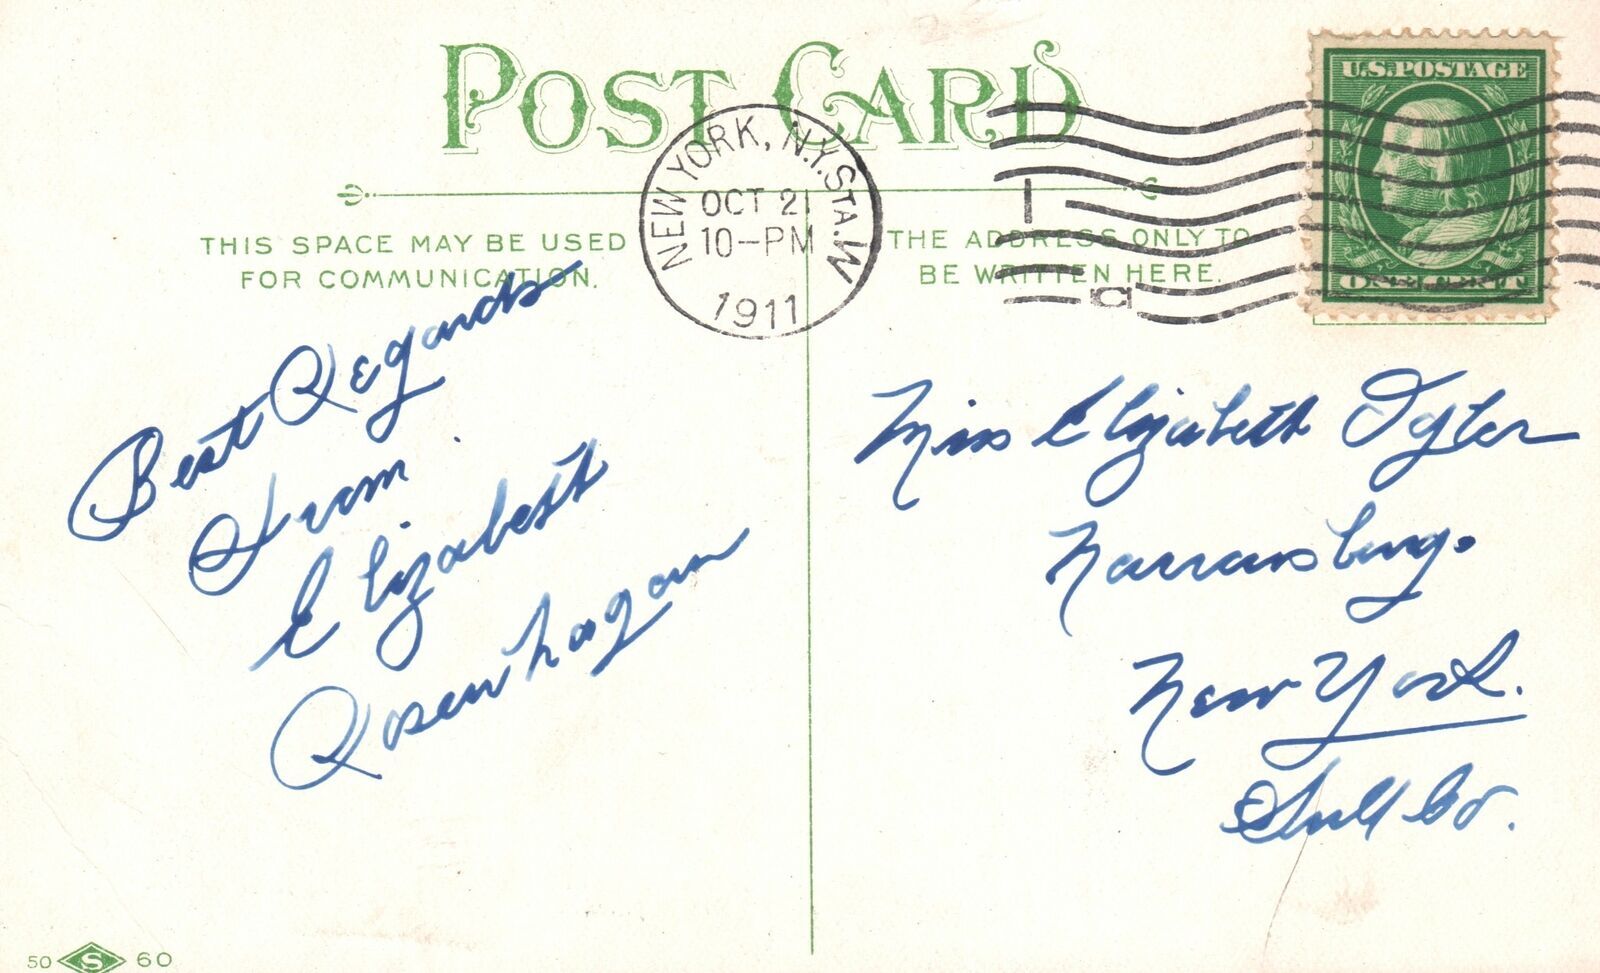 POST CARD
NEW YORK, N.Y. STA. W
OCT 21
10-PM
1911
U.S. POSTAGE
ONE CENT
THIS SPACE MAY BE USED
FOR COMMUNICATION.
THE ADDRESS ONLY TO
BE WRITTEN HERE.
Best Regards
From
Elizabeth
Rosenhagen
Miss Elizabeth
New York.
Sull Co.
50 S 60